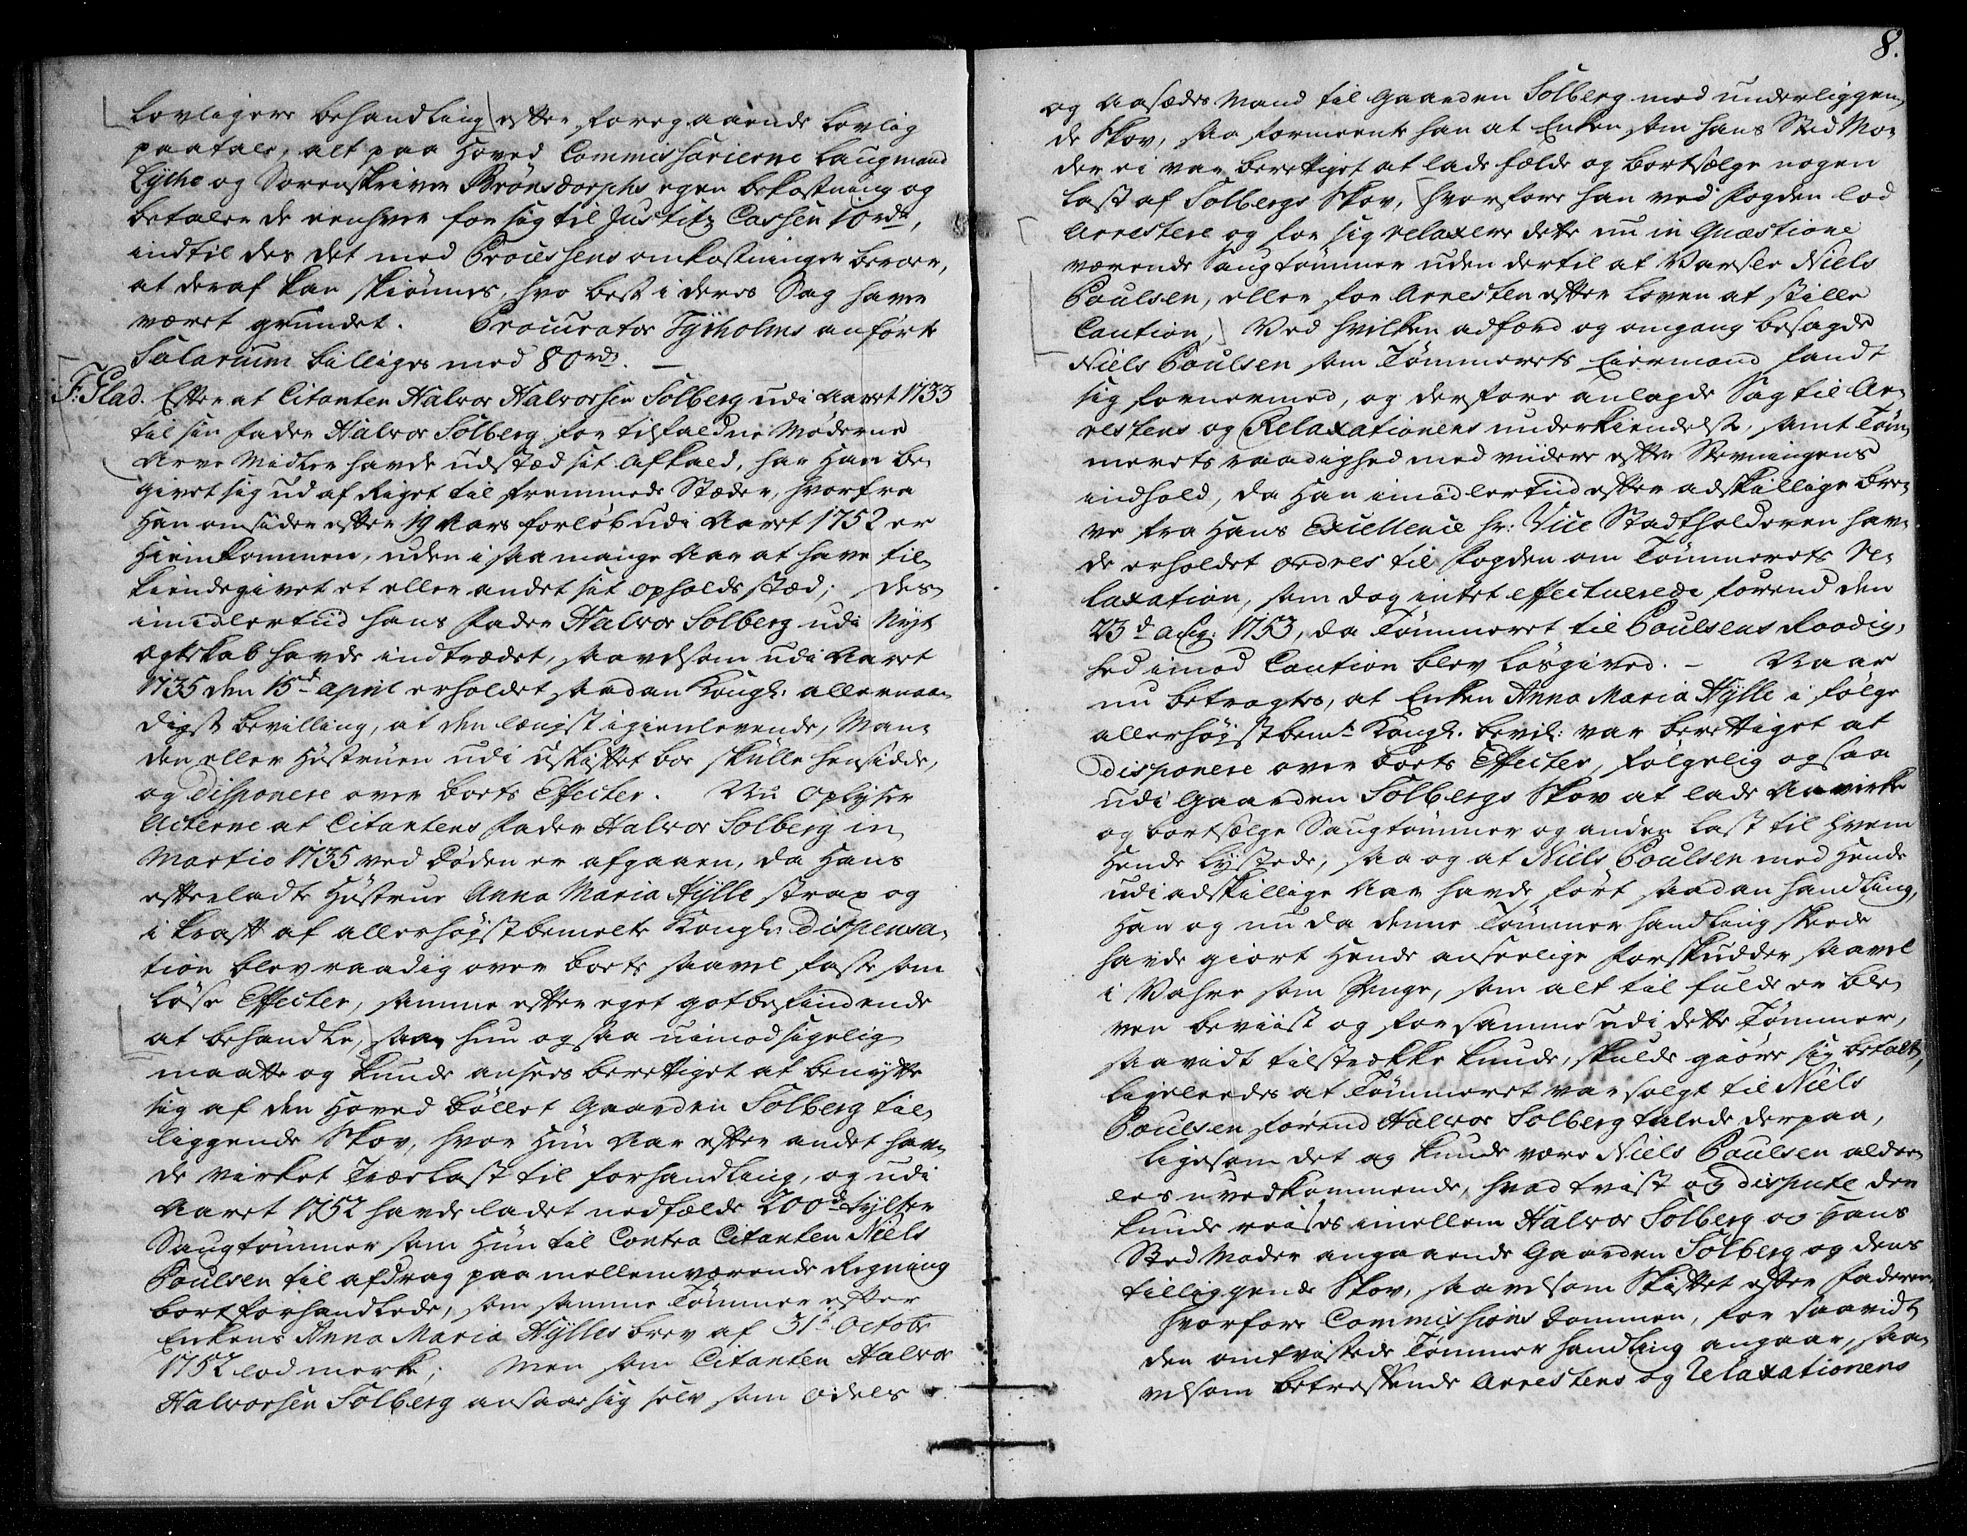 lovligere behandling efter foregaaende lovlig
paatale, alt paa Hoved Commissarierne Laugmand
Lyche og Sorenskriver Brönsdorphs egen bekostning og
betaler de eenhver for sig til Justitz Cassen 10 rdr,
indtil der det med Processens omkostninger beroer,
at deraf kan skiönnes, hvo best i deres Sag haver
været grundet. Procurator Tyrholms anförte
Salarium billiges med 80 rdr. —
F: Glad. Efter at Citanten Halvor Halvorsen Solberg udi Aaret 1733
til sin fader Halvor Solberg for tilfaldne Möderne
Arve Midler havde udstæd sit Afkald, har Han be-
givet sig ud af Riget til fremmede Stæder, hvorfra
Han omsider efter 19 Aars forlöb udi Aaret 1752 er
hiemkommen, uden i saa mange Aar at have til
kiendegivet et eller andet sit opholds stæd; Des
imidlertiid hans fader Halvor Solberg udi Nyt
Ægteskab havde indtrædet, saavelsom udi Aaret
1735 den 15de april erholdet saadan Kongl: allernaa-
digst bevilling, at den længst igienlevende, Man-
den eller Hustruen udi uskiftet boe skulle hensidde,
og disponere over boets Effecter. Nu Oplyser
Acterne at Citantens fader Halvor Solberg in
Martio 1735 ved Döden er afgaaen, da Hans
efterladte Hustrue Anna Maria Hylle strax og
i kraft af allerhögstbemelte Kongl: Dispensa-
tion blev raadig over boets saavel faste som
löse Effecter, samme efter eget gotbefindende
at behandle, saa hun ogsaa uimodsigelig
maatte og kunde ansees berettiget at benytte
sig af den Hoved Böllet Gaarden Solberg til
liggende Skov, hvor Hun Aar efter andet hav-
de virket Trælast til forhandling, og udi
Aaret 1752 havde ladet nedfælde 200de Tylter
Saugtömmer som Hun til Contra Citanten Niels
Poulsen til afdrag paa mellemværende Regning
bortforhandlede, som samme Tömmer efter
Enkens Anna Maria Hylles brev af 31te Octobr
1752 lod merke; Men som Citanten Halvor
Halvorsen Solberg ansaae sig selv som Odels
8.
og Aasædes Mand til Gaarden Solberg med underliggen-
de Skov, saa formeente han at Enken som hans Sted Mo-
der ei var berettiget at lade fælde og bortsælge nogen
last af Solbergs Skov, hvorfore han ved fogden lod
Arrestere og for sig relaxere dette nu in Quæstione
værende Saugtömmer uden dertil at Varsle Niels
Poulsen, eller for Arresten efter loven at stille
Caution, Ved hvilken adfærd og omgang besagde
Niels Poulsen som Tömmerets Eiermand fandt
sig fornermed, og derfore anlagde Sag til Ar-
restens og Relaxationens underkiendelse, samt Töm-
merets raadighed med viidere efter Stevningens
indhold, da Han imidlertiid efter adskillige bre-
ve fra Hans Excellence hr: Vice Stadtholderen hav-
de erholdet ordres til fogden om Tömmerets Re-
laxation, som dog intet effectuerede förend den
23de Aug: 1753, da Tömmeret til Poulsens Raadig-
hed imod Caution blev lösgived. – Naar
nu betragtes, at Enken Anna Maria Hylle i fölge
allerhögstbemte Kongl. bevil: var berettiget at
disponere over boets Effecter, fölgelig ogsaa
udi Gaarden Solbergs Skov at lade Aavirke
og bortsælge Saugtömmer og anden last til Hvem
Hende lystede, saa og at Niels Poulsen med Hende
udi adskillige Aar havde fört saadan handling,
Han og nu da denne Tömmer handling skeede
havde giort Hende anseelige forskudder saavel
i Vahre som Penge, som alt til fulde er ble-
ven beviist og for samme udi dette Tömmer,
saavidt tilstrække kunde, skulde giöre sig betalt,
ligeledes at Tömmeret var solgt til Niels
Poulsen förend Halvor Solberg talede derpaa,
ligesom det og kunde være Niels Poulsen alde-
les uvedkommende, hvad tvist og dispute der
kunde reises imellem Halvor Solberg og Hans
Sted Moder angaaende Gaarden Solberg og dens
tilliggende Skov, saavelsom Skiftet efter faderen,
hvorfore Commissions Dommen, for saavidt
den omtvistede Tömmer handling angaar, saa-
velsom betreffende Arrestens og Relaxationens